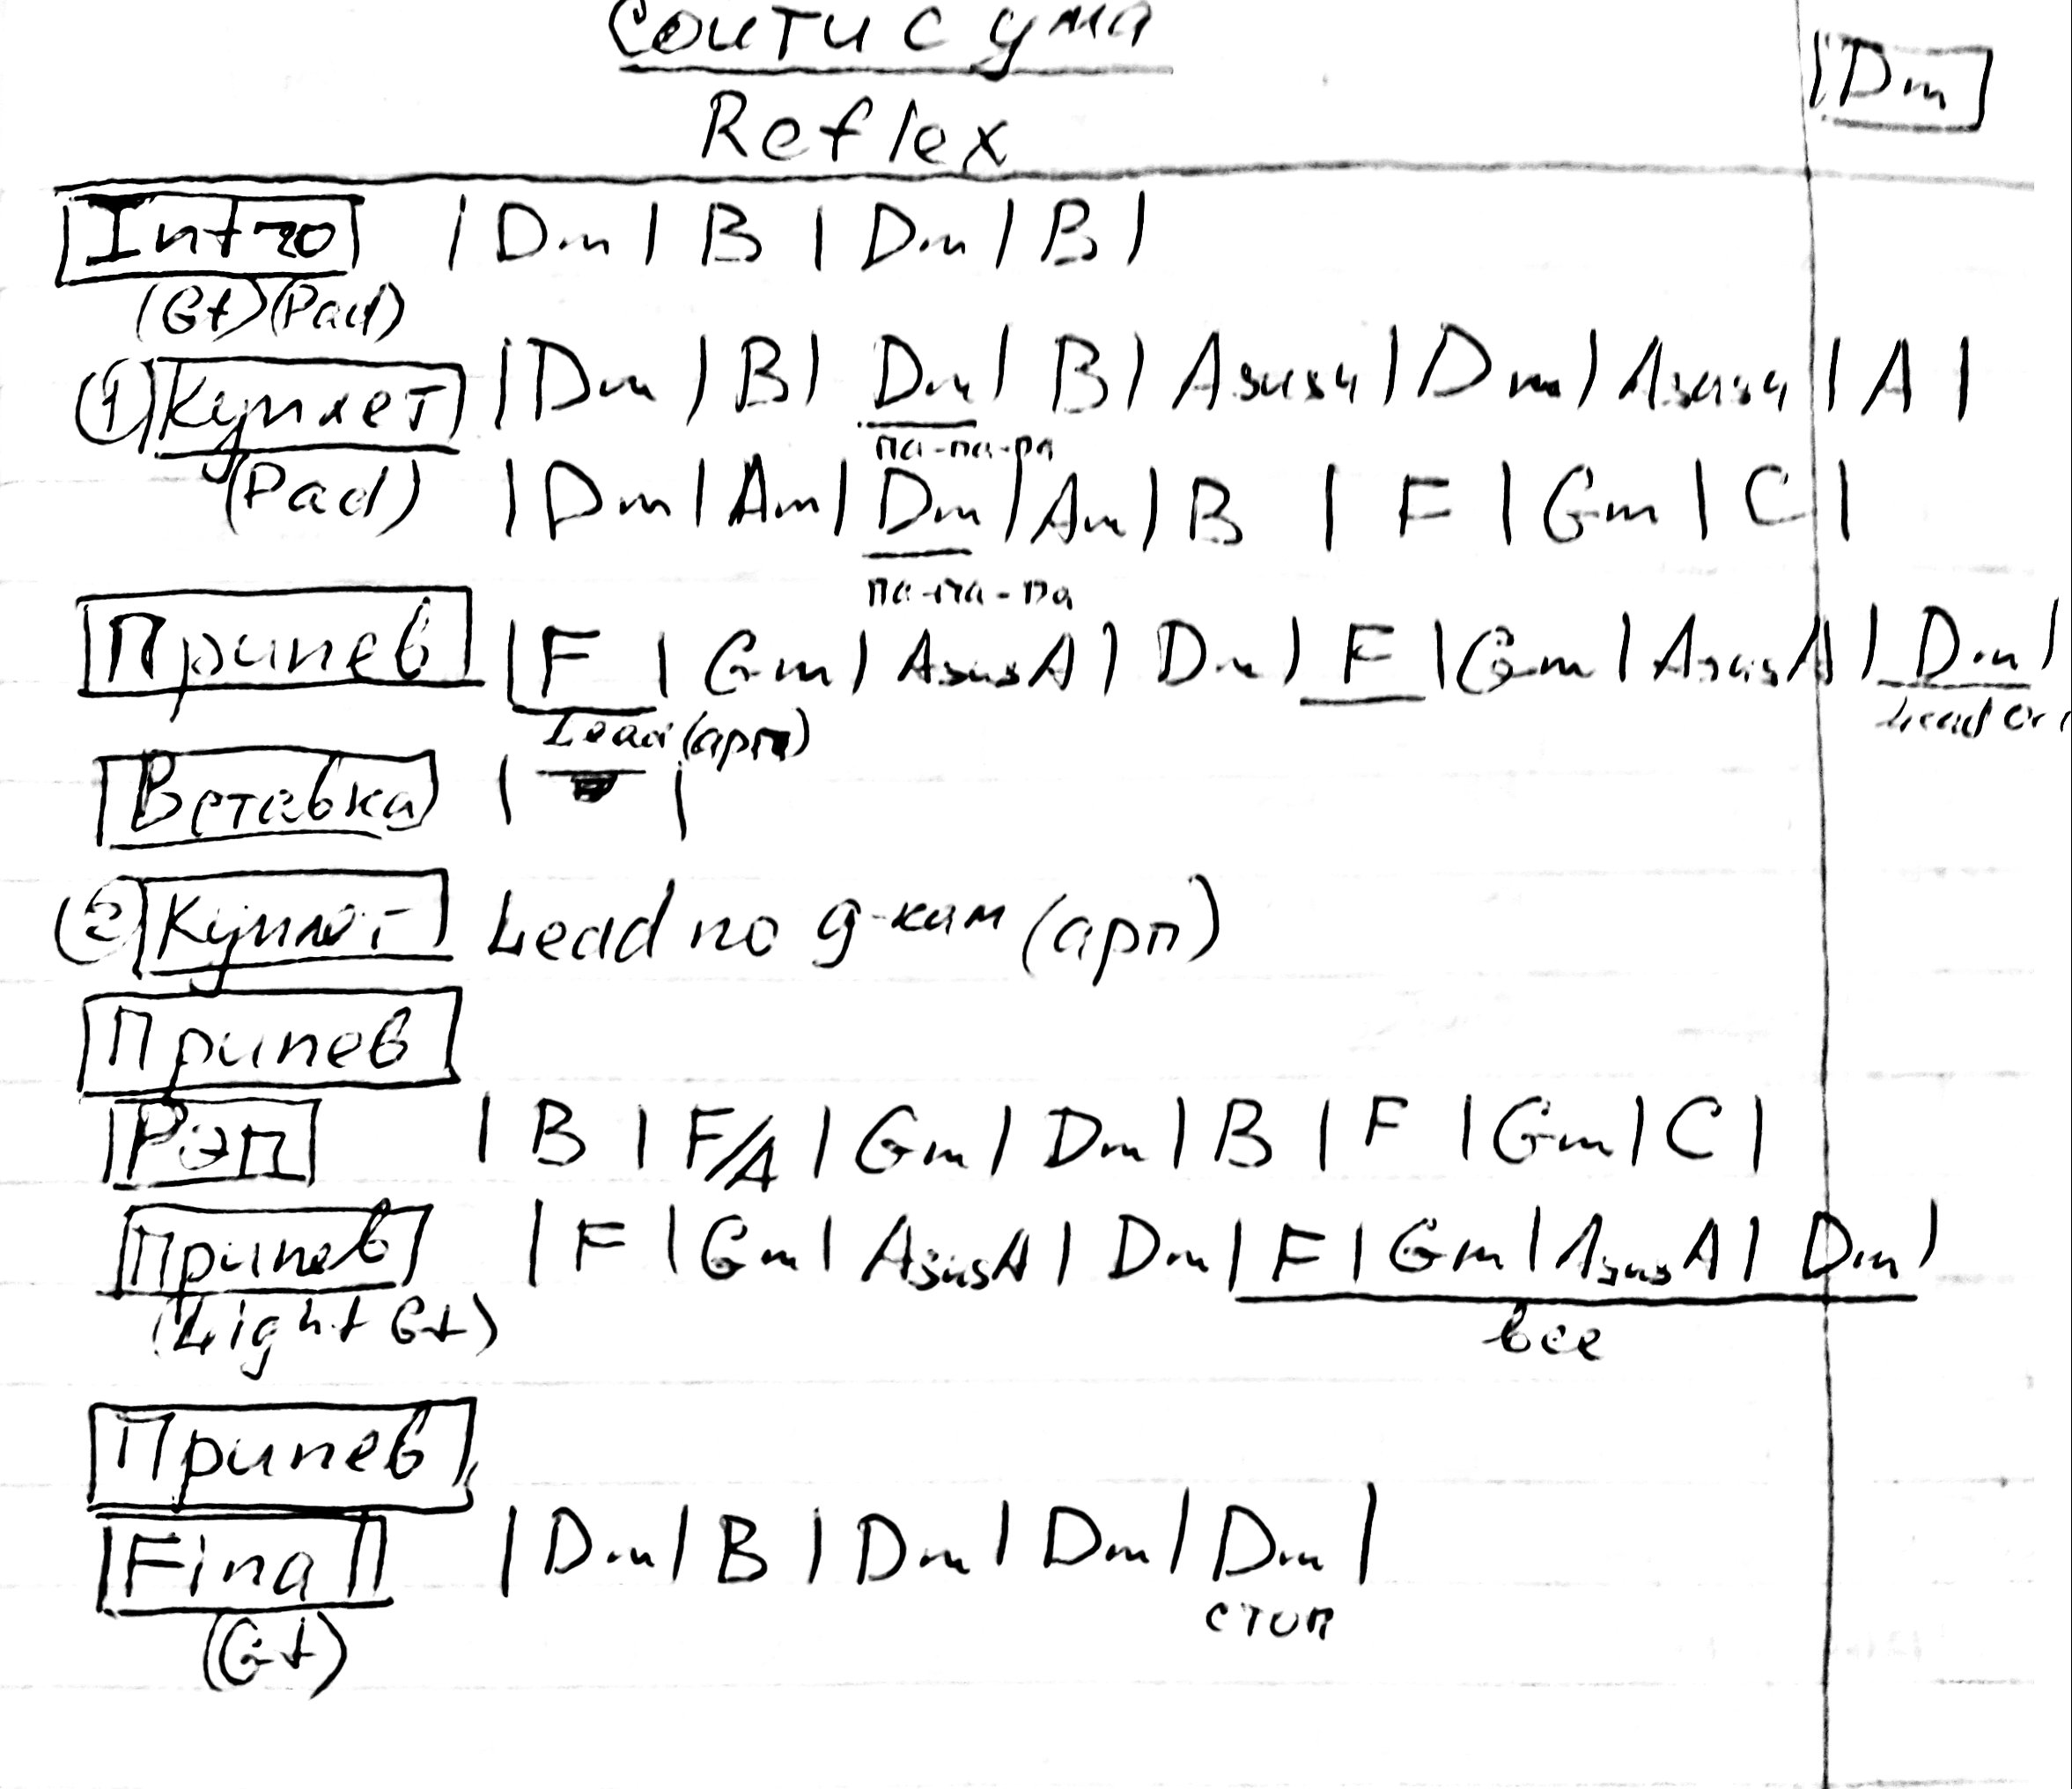 Сойти с ума
|Dm|
Reflex
Intro | Dm | B | Dm | B |
(Gt) (Pad)
① Куплет | Dm | B | Dm | B | Asus4 | Dm | Asus4 | A |
па-па-ра
(Pad) | Dm | Am | Dm | Am | B | F | Gm | C |
па-па-па
Припев | F | Gm | AsusA | Dm | F | Gm | AsusA | Dm |
Lead (арп) Lead
Вставка | |
② Куплет Lead по д-кам (арп)
Припев
Рэп | B | F/A | Gm | Dm | B | F | Gm | C |
Припев | F | Gm | AsusA | Dm | F | Gm | AsusA | Dm |
(Light Gt) все
Припев
Final | Dm | B | Dm | Dm | Dm |
стоп
(Gt)